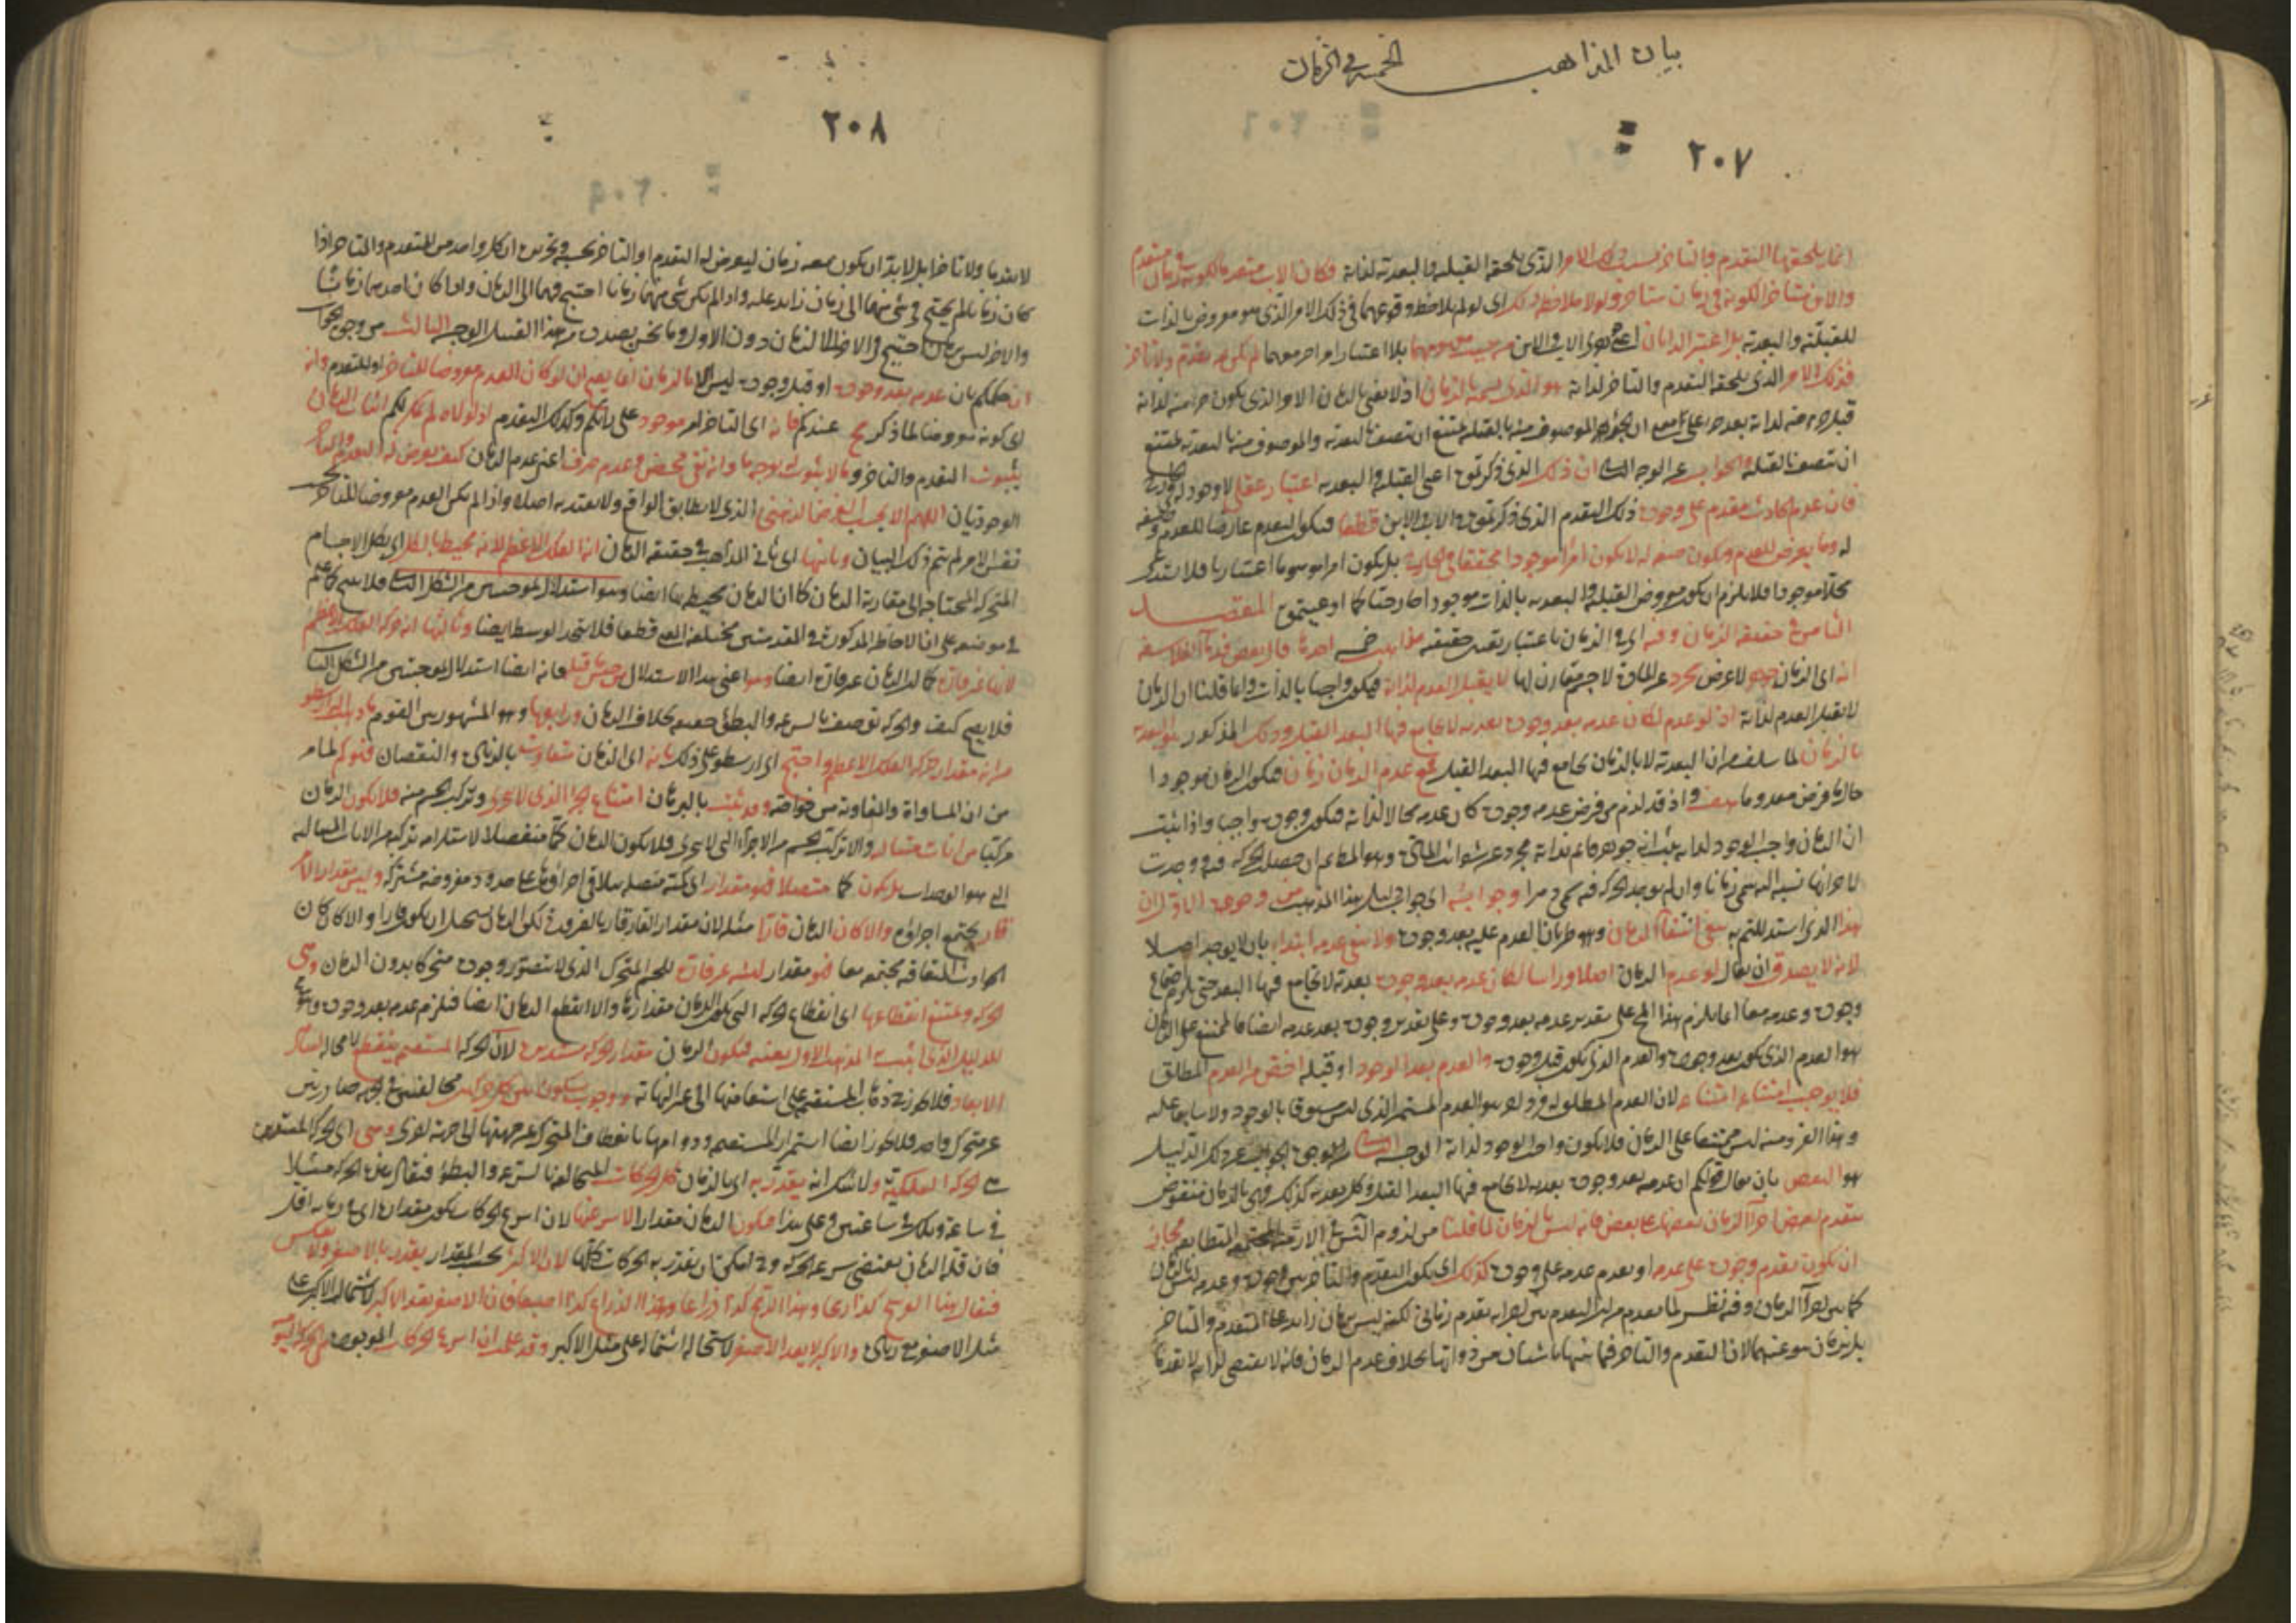 بيان المذاهب الخمسة في الزمان
٢٠٧
انما يلحقها التقدم والتاخر بسبب ذلك الامر الذي يلحقه القبلية والبعدية لذاته فكان الاب متقدما لكونه في زمان متقدم
والابن متاخرا لكونه في زمان متاخر ولولا ملاحظة ذلك اى لو لم يلاحظ وقوعهما في ذلك الامر الذي هو معروض بالذات
للقبلية والبعدية بل اعتبر الذاتان اعنى جوهرى الاب والابن من حيث هما بلا اعتبار امر اخر معهما لم يكن ثمة تقدم ولا تاخر
فذلك الامر الذي يلحقه التقدم والتاخر لذاته هو الذي نسميه بالزمان اذ لا نعنى بالزمان الا الامر الذي يكون جزء منه لذاته
قبل وجزء منه لذاته بعد جزء على معنى ان الجزء الموصوف منه بالقبلية يمتنع ان يتصف بالبعدية والموصوف منه بالبعدية يمتنع
ان يتصف بالقبلية والجواب عن الوجه الثانى ان ذلك الذي ذكرتموه اعنى القبلية والبعدية اعتبار عقلى لا وجود له في الخارج
فان عدم الحادث مقدم على وجوده ذلك التقدم الذي ذكرتموه في الاب والابن قطعا فيكون التقدم عارضا للعدم وصفة
له وما يعرض للعدم ويكون صفة له لا يكون امرا موجودا محققا في الخارج بل يكون امرا موهوما اعتباريا فلا يستدعى
محلا موجودا فلا يلزم ان يكون معروض القبلية والبعدية بالذات موجودا خارجيا كما ادعيتموه المقصد
الثامن في حقيقة الزمان وفيه اى في الزمان باعتبار تعيين حقيقته مذاهب خمسة احدها قال بعض قدماء الفلاسفة
انه اى الزمان جوهر لا عرض مجرد عن المادة لا جسم مقارن لها لا يقبل العدم لذاته فيكون واجبا بالذات وانما قلنا ان الزمان
لا يقبل العدم لذاته اذ لو عدم لكان عدمه بعد وجوده بعدية لا يجامع فيها البعد القبل وذلك المذكور هو البعدية
بالزمان لما سلف من ان البعدية لا بالزمان يجامع فيها البعد القبل فمع عدم الزمان زمان فيكون الزمان موجودا
حال ما فرض معدوما هف واذ قد لزم من فرض عدمه وجوده كان عدمه محالا لذاته فيكون وجوده واجبا واذا ثبت
ان الزمان واجب الوجود لذاته ثبت انه جوهر قائم بذاته مجرد عن شوائب المادة وهو المطلوب ثم ان حصلت الحركة فيه ووجدت
لاجزائها نسبة اليه سمى زمانا وان لم يوجد الحركة فيه سمى دهرا وجوابه اى جواب دليل هذا المذهب من وجوه الاول ان
هذا الذي استدللتم به ينفى انتفاء الزمان وهو طريان العدم عليه بعد وجوده ولا ينفى عدمه ابتداء بان لا يوجد اصلا
لانه لا يصدق ان يقال لو عدم الزمان اصلا ورأسا لكان عدمه بعد وجوده بعدية لا يجامع فيها البعد حتى يلزم اجتماع
وجوده وعدمه معا انما يلزم هذا المحال على تقدير عدمه بعد وجوده وعلى تقدير وجوده بعد عدمه ايضا فالممتنع على الزمان
هو العدم الذي يكون بعد وجوده والعدم الذي يكون قبل وجوده والعدم بعد الوجود او قبله اخص من العدم المطلق
فلا يوجب امتناعه امتناعه لان العدم المطلق له فرد اخر هو العدم المستمر الذي ليس مسبوقا بالوجود ولا سابقا عليه
وهذا الفرد منه ليس ممتنعا على الزمان فلا يكون واجب الوجود لذاته الوجه الثانى من وجوه الجواب عن ذلك الدليل
هو النقض بان يقال قولكم ان عدمه بعد وجوده بعدية لا يجامع فيها البعد القبل وكل بعدية كذلك فهى بالزمان منقوض
بتقدم بعض اجزاء الزمان بعضها على بعض فانه ليس بالزمان لما قلنا من لزوم التس في الازمنة المجتمعة المتطابقة فجاز
ان يكون تقدم وجوده على عدمه او تقدم عدمه على وجوده كذلك اى يكون التقدم والتاخر بين وجوده وعدمه ليس بالزمان
كما بين اجزاء الزمان وفيه نظر لما تقدم من ان التقدم بين اجزائه تقدم زمانى لكنه ليس بزمان زائد على المتقدم والمتاخر
بل بزمان هو عينهما لان التقدم والتاخر فيما بينهما ناشئان من ذواتها بخلاف عدم الزمان فانه لا يقتضى لذاته لا تقدما
٢٠٨
لا تقدما ولا تاخرا بل لا بد ان يكون معه زمان ليعرض له التقدم او التاخر بحسبه وتحريره ان كل واحد من المتقدم والمتاخر اذا
كان زمانا لم يحتج في شئ منهما الى زمان زائد عليه واذا لم يكن شئ منهما زمانا احتيج فيهما الى الزمان واذا كان احدهما زمانا
والاخر ليس بزمان احتيج في الاخر الى الزمان دون الاول وما نحن بصدده من هذا القبيل الوجه الثالث من وجوه الجواب
ان حكمكم بان عدمه بعد وجوده او قبل وجوده ليس الا بالزمان انما يصح ان لو كان العدم معروضا للتاخر او للتقدم وانه
اى كونه معروضا لما ذكر مح عندكم فانه اى التاخر امر موجود على رايكم وكذلك التقدم اذ لولاه لم يمكن لكم اثبات الزمان
بثبوت التقدم والتاخر وما لا ثبوت له بوجه ما وانه نفى محض وعدم صرف اعنى عدم الزمان كيف يعرض له التقدم والتاخر
الوجوديان اللهم الا بحسب الفرض الذهنى الذي لا يطابق الواقع ولا يعتد به اصلا واذا لم يكن العدم معروضا للتاخر بحسب
نفس الامر لم يتم ذلك البيان وثانيها اى ثانى المذاهب في حقيقة الزمان انه الفلك الاعظم لانه محيط بالكل اى بكل الاجسام
المتحركة المحتاجة الى مقارنة الزمان كما ان الزمان محيط بها ايضا وهو استدلال بموجبتين من الشكل الثانى فلا ينتج كما علم
في موضعه على ان الاحاطة المذكورة في المقدمتين مختلفة المعنى قطعا فلا يتحد الوسط ايضا وثالثها انه حركة الفلك الاعظم
لانها غير قارة كما ان الزمان غير قار ايضا وهو اعنى هذا الاستدلال من جنس ما قبله فانه ايضا استدلال بموجبتين من الشكل الثانى
فلا يصح كيف والحركة توصف بالسرعة والبطؤ حقيقة بخلاف الزمان ورابعها وهو المشهور بين القوم ما ذهب اليه ارسطو
من انه مقدار حركة الفلك الاعظم واحتج اى ارسطو على ذلك بانه اى الزمان متفاوت بالزيادة والنقصان فهو كم لما مر
من ان المساواة والمفاوتة من خواصه وقد ثبت بالبرهان امتناع الجزء الذي لا يتجزى وتركب الجسم منه فلا يكون الزمان
مركبا من انات متتالية والا تركب الجسم من الاجزاء التى لا يتجزى فلا يكون الزمان كما منفصلا لاستلزامه تركبه من الانات المتتالية
التى هى الوحدات بل يكون كما متصلا فهو مقدار اى كمية متصلة يتلاقى اجزاؤها على حدود مفروضة مشتركة وليس مقدارا لامر
قار يجتمع اجزاؤه والا كان الزمان قارا مثله لان مقدار القار قار بالضرورة لكن الزمان يستحيل ان يكون قارا والا كان
الحوادث المتعاقبة مجتمعة معا فهو مقدار لهيئة غير قارة للجسم المتحرك الذي لا يتصور وجوده متحركا بدون الزمان وهى
الحركة ويمتنع انقطاعها اى انقطاع الحركة التى يكون الزمان مقدارها والا انقطع الزمان ايضا فيلزم عدمه بعد وجوده وهو مح
للدليل الذي اثبت به المذهب الاول بعينه فيكون الزمان مقدار الحركة مستديرة لان الحركة المستقيمة ينقطع لا محالة لتناهى
الابعاد فلا يجوز ذهاب المستقيمة على استقامتها الى غير النهاية ووجوب سكون بين كل حركتين مخالفتين في الجهة صادرتين
عن متحرك واحد فلا يجوز ايضا استمرار المستقيمة ودوامها بانعطاف المتحرك عن جهتها الى جهة اخرى وهى اى الحركة المستديرة
هى الحركة الفلكية ولا شك انه يقدر به اى بالزمان كل الحركات المتخالفة بالسرعة والبطؤ فيقال هذه الحركة مثلا
في ساعة وتلك في ساعتين وعلى هذا فيكون الزمان مقدارا لاسرعها لان اسرع الحركات يكون مقدارها اى زمانها اقل
فان قلة الزمان يقتضى سرعة الحركة وح امكن ان يقدر به الحركات كلها لان الاكثر بحسب المقدار يقدر بالاصغر ولا ينعكس
فيقال هذا الفرسخ كذا رمحا وهذا الرمح كذا ذراعا وهذا الذراع كذا اصبعا فان الاصغر يعد الاكبر لاشتمال الاكبر على
مثل الاصغر مع زيادة والاكبر لا يعد الاصغر لاستحالة اشتماله على مثل الاكبر وقد علمت ان اسرع الحركات الموجودة هى الحركة اليومية